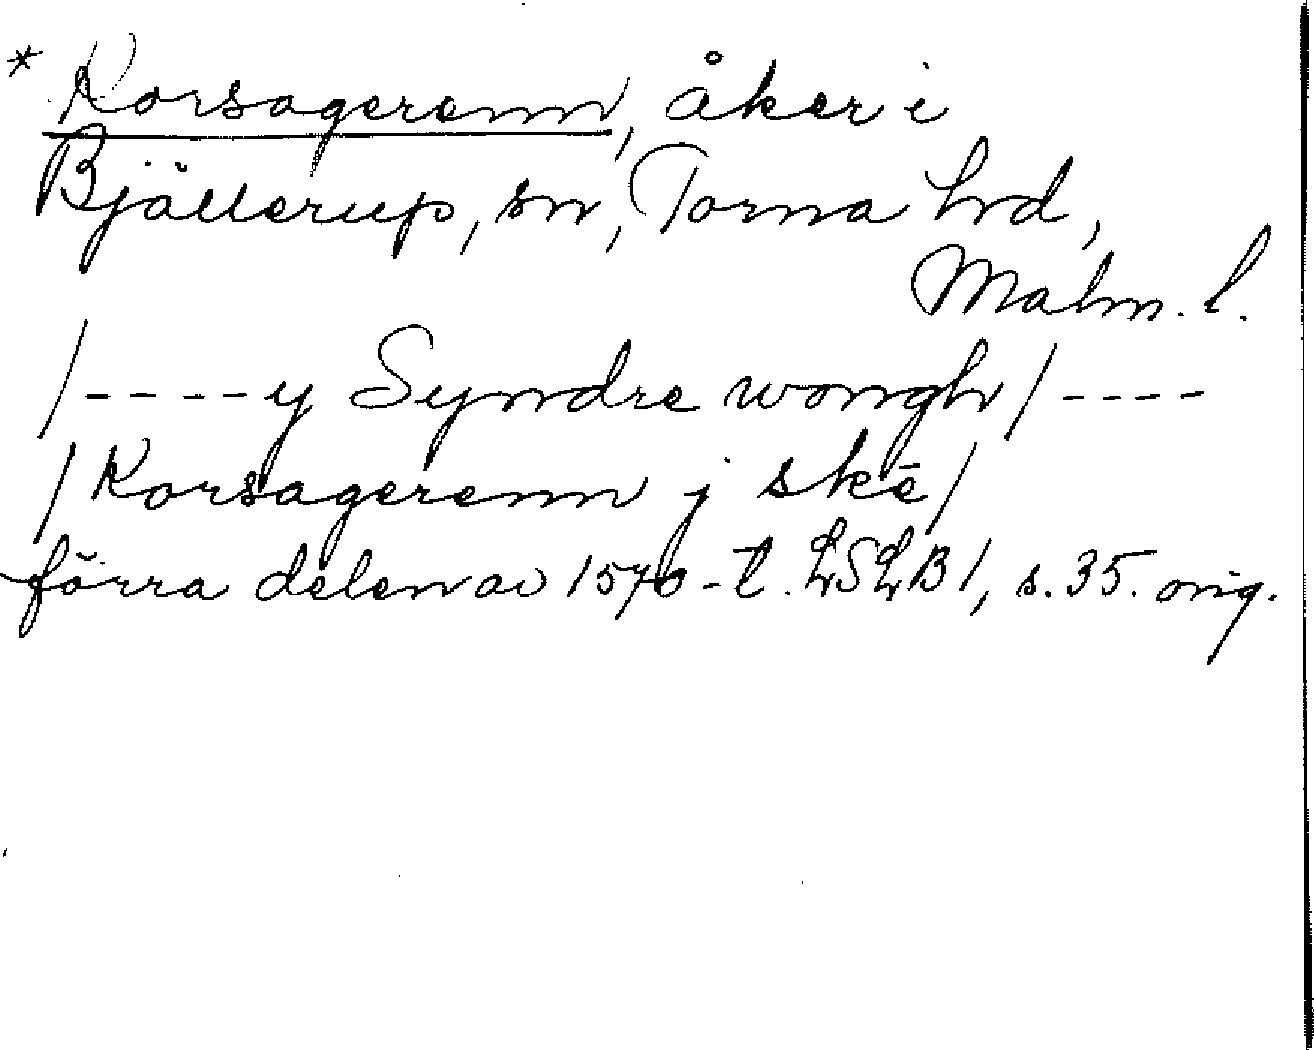 * Korsagerenn, åker i
Bjällerup, sn, Torna hd,
Malm. l.
/----y Syndre wongh/----
/Korsagerenn j skē/
förra delen av 1570-t. LSLB 1, s. 35. orig.